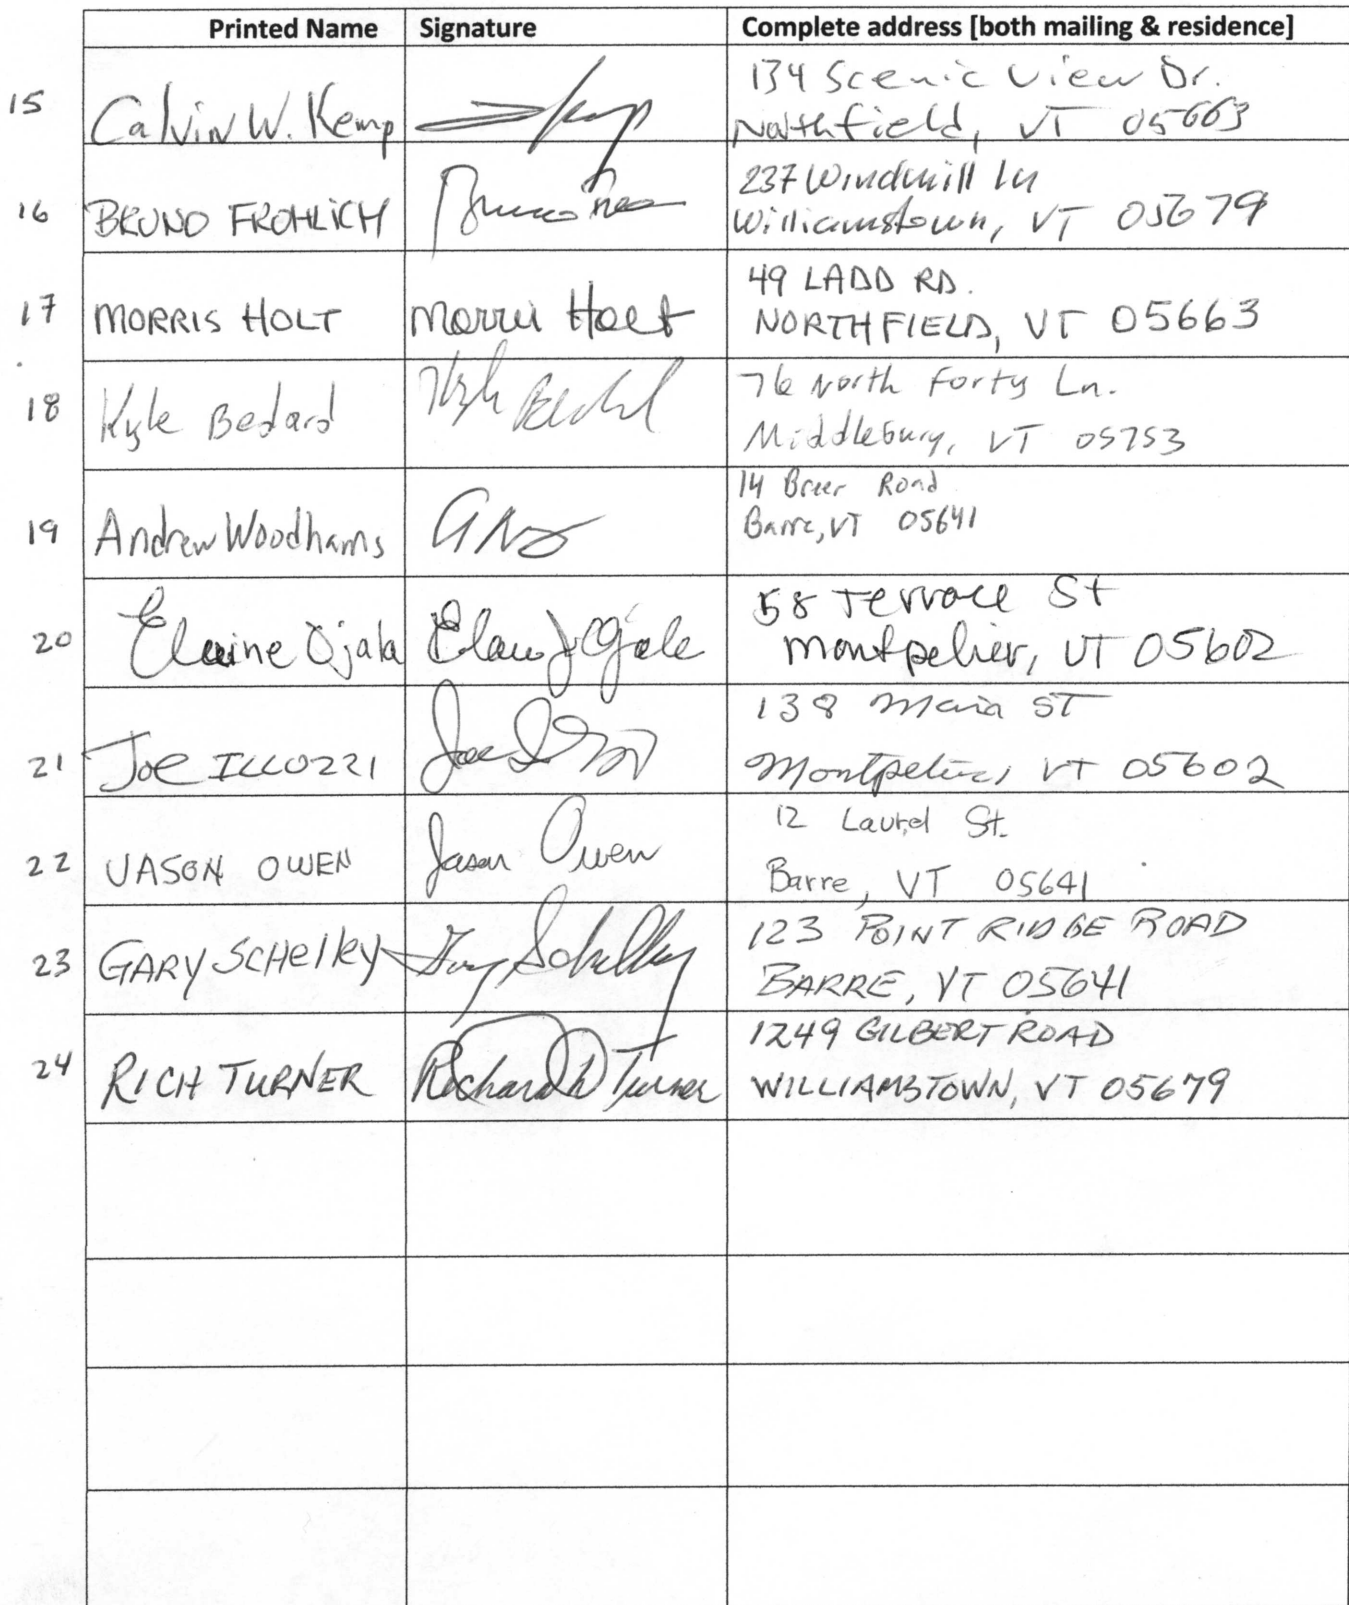 Printed Name Signature Complete address [both mailing & residence]
15 Calvin W. Kemp
134 Scenic View Dr.
Northfield, VT 05663
16 BRUNO FROHLICH
237 Windmill Ln
Williamstown, VT 05679
17 MORRIS HOLT Morris Holt
49 LADD RD.
NORTHFIELD, VT 05663
18 Kyle Bedard Kyle Bedard
76 North Forty Ln.
Middlebury, VT 05753
19 Andrew Woodhams
14 Road
Barre, VT 05641
20 Elaine Ojala Elaine J Ojala
58 Terrace St
Montpelier, VT 05602
21 Joe ILLUZZI
138 Main ST
Montpelier, VT 05602
22 JASON OWEN Jason Owen
12 Laurel St.
Barre, VT 05641
23 GARY SCHelKy Gary Schelky
123 POINT RIDGE ROAD
BARRE, VT 05641
24 RICH TURNER Richard W Turner
1249 GILBERT ROAD
WILLIAMSTOWN, VT 05679